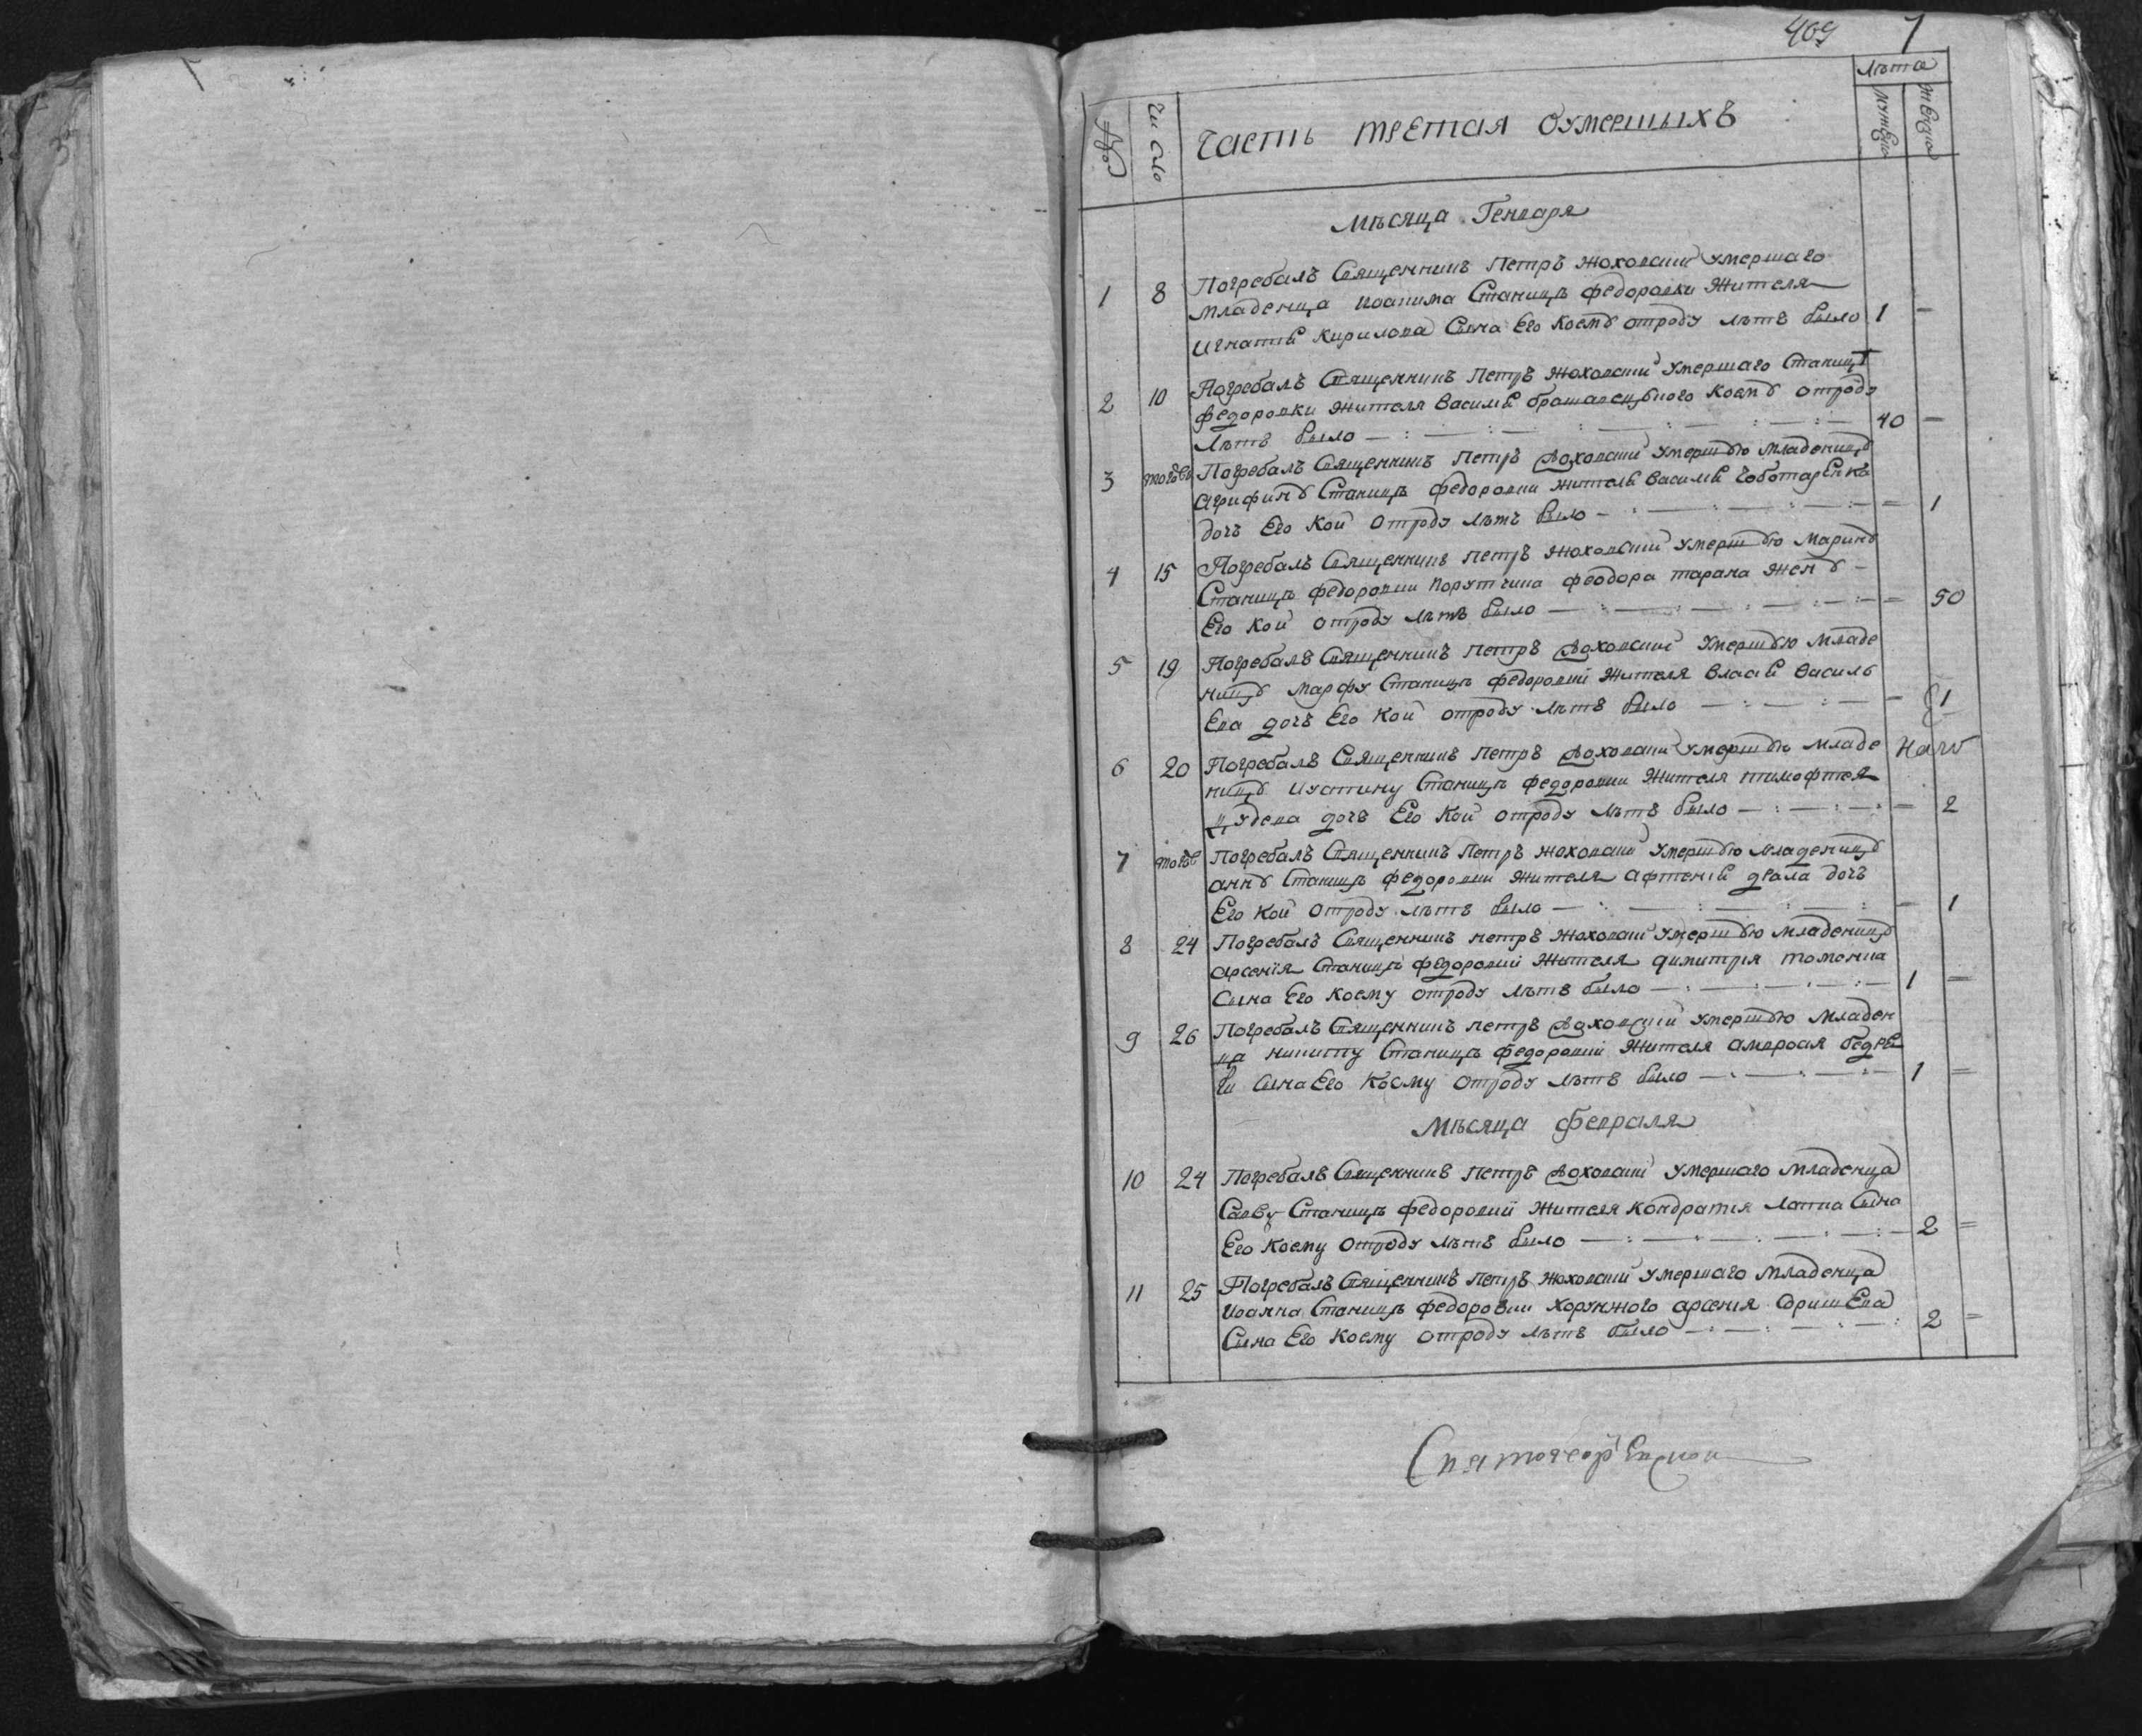 409 7
№ Число Часть третая оумершыхъ Лѣта мужеска женска
Мѣсяца Генваря
1 8 Погребалъ Священникъ Петръ Жоховский умершаго
младенца Иоакима Станицѣ федоровки Жителя
Игнатий Кирилова Сына Его Коемꙋ отродꙋ лѣтъ было 1 —
2 10 Погребалъ Священникъ Петръ Жоховский умершаго Станицѣ
федоровки Жителя Василий Коемꙋ отродꙋ
Лѣтъ было — 40 —
3 Погребалъ Священникъ Петръ Жоховский умершꙋю Младеницꙋ
Агрифинꙋ Станицѣ федоровки жителѣ Василий Чоботаренка
дочъ Его Кой отродꙋ лѣтъ было — = 1
4 15 Погребалъ Священникъ Петръ Жоховский умершꙋю Маринꙋ
Станицѣ федоровки Порутчика феодора тарана женꙋ —
Его Кой отродꙋ лѣтъ было — = 50
5 19 Погребалъ Священникъ Петръ Жоховский Умершꙋю Младе
ницꙋ Марфꙋ Станицѣ федоровки Жителя Власий Василь
Ева дочъ Его Кой отродꙋ лѣтъ было — = 1
6 20 Погребалъ Священникъ Петръ Жоховский умершꙋю младе
ницꙋ Иустину Станицѣ федоровки Жителя тимофтея
дочъ Его Кой отродꙋ лѣтъ было — = 2
7 Погребалъ Священникъ Петръ Жоховский Умершꙋю Младеницꙋ
аннꙋ Станицѣ федоровки Жителя дочъ
Его Кой отродꙋ лѣтъ было — — 1
8 24 Погребалъ Священникъ петръ Жоховский умершꙋю Младеницꙋ
арсения Станицѣ федоровки Жителя димитрия
Сына Его Коему отродꙋ лѣтъ было — 1 =
9 26 Погребалъ Священникъ петръ Жоховский умершꙋю Младен
ца никиту Станицѣ федоровки Жителя
Сына Его Коему отродꙋ лѣтъ было — 1 =
Мѣсяца Февраля
10 24 Погребалъ Священникъ Петръ Жоховский Умершаго Младенца
Савву Станицѣ федоровки Жителя Кондратия Сына
Его Коему отродꙋ лѣтъ было — 2 =
11 25 Погребалъ Священникъ Петръ Жоховский умершаго Младенца
Иоанна Станицѣ федоровки Хорунжого арсения
Сына Его Коему отродꙋ лѣтъ было — 2 =